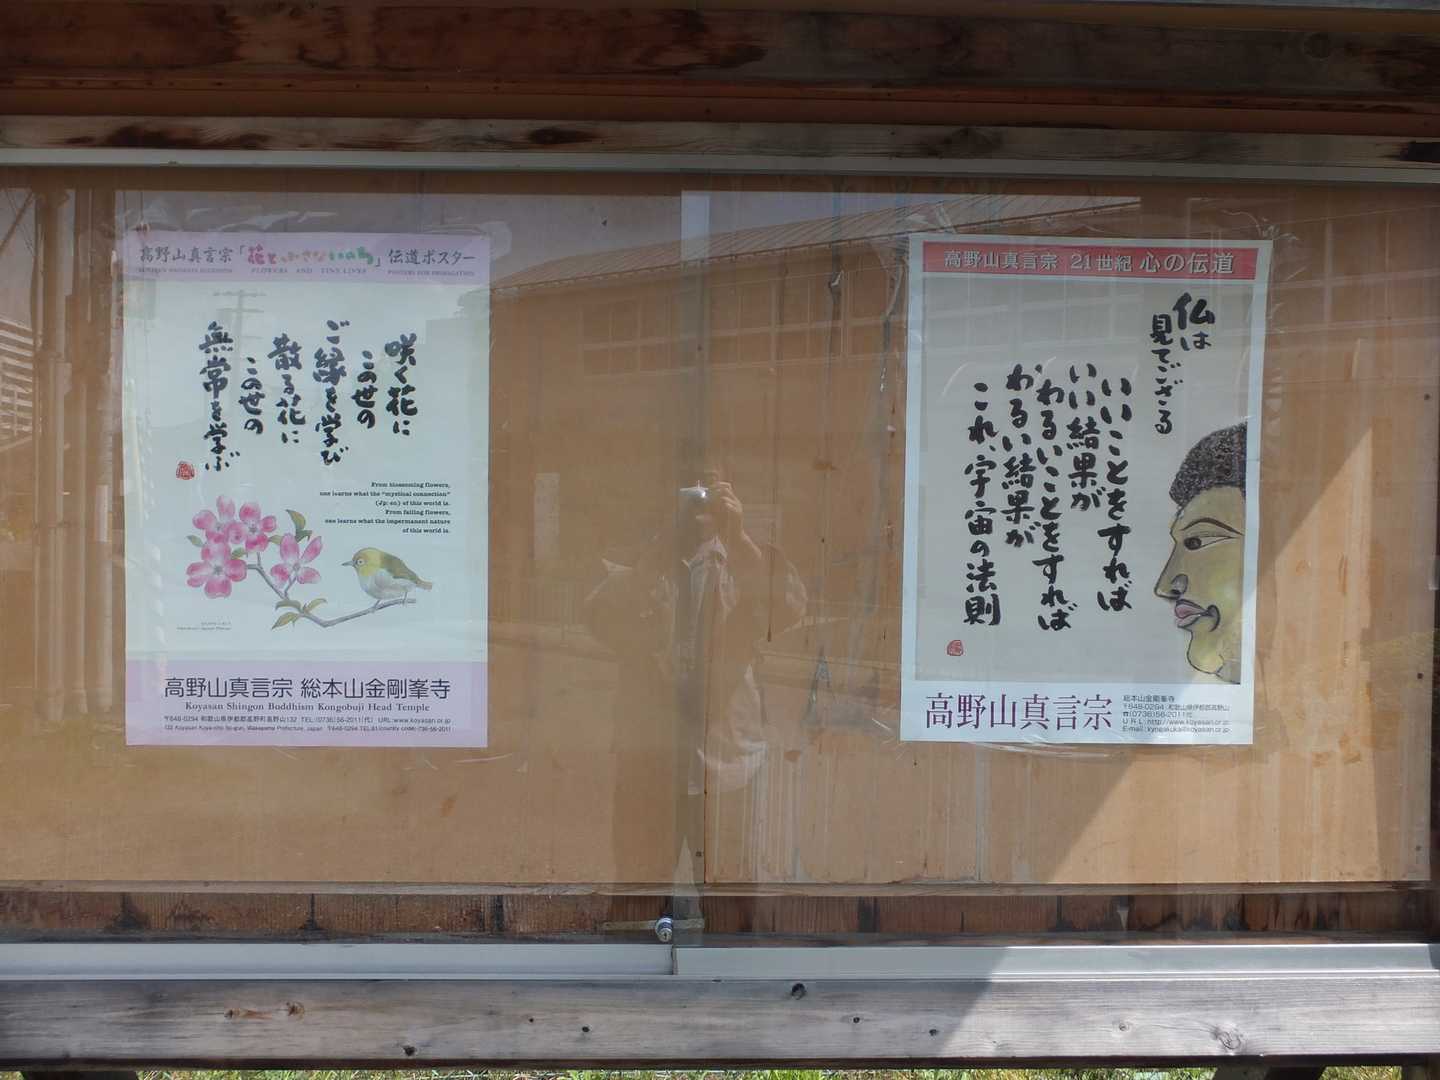 高野山真言宗「花と小さないのち」伝道ポスター
KOYASAN SHINGON BUDDHISM FLOWERS AND TINY LIVES POSTERS FOR PROPAGATION
咲く花に
この世の
ご縁を学び
散る花に
この世の
無常を学ぶ
From blossoming flowers,
one learns what the "mystical connection"
of this world is.
From falling flowers,
one learns what the impermanent nature
of this world is.
高野山真言宗 総本山金剛峯寺
Koyasan Shingon Buddhism Kongobuji Head Temple
〒648-0294 和歌山県伊都郡高野町高野山132 TEL(0736)56-2011(代) URL:www.koyasan.or.jp
高野山真言宗 21世紀 心の伝道
仏は
見てござる
いいことをすれば
いい結果が
わるいことをすれば
わるい結果が
これ、宇宙の法則
高野山真言宗
総本山金剛峯寺
〒648-0294 和歌山県伊都郡高野山
☎(0736)56-2011代
URL:http://www.koyasan.or.jp